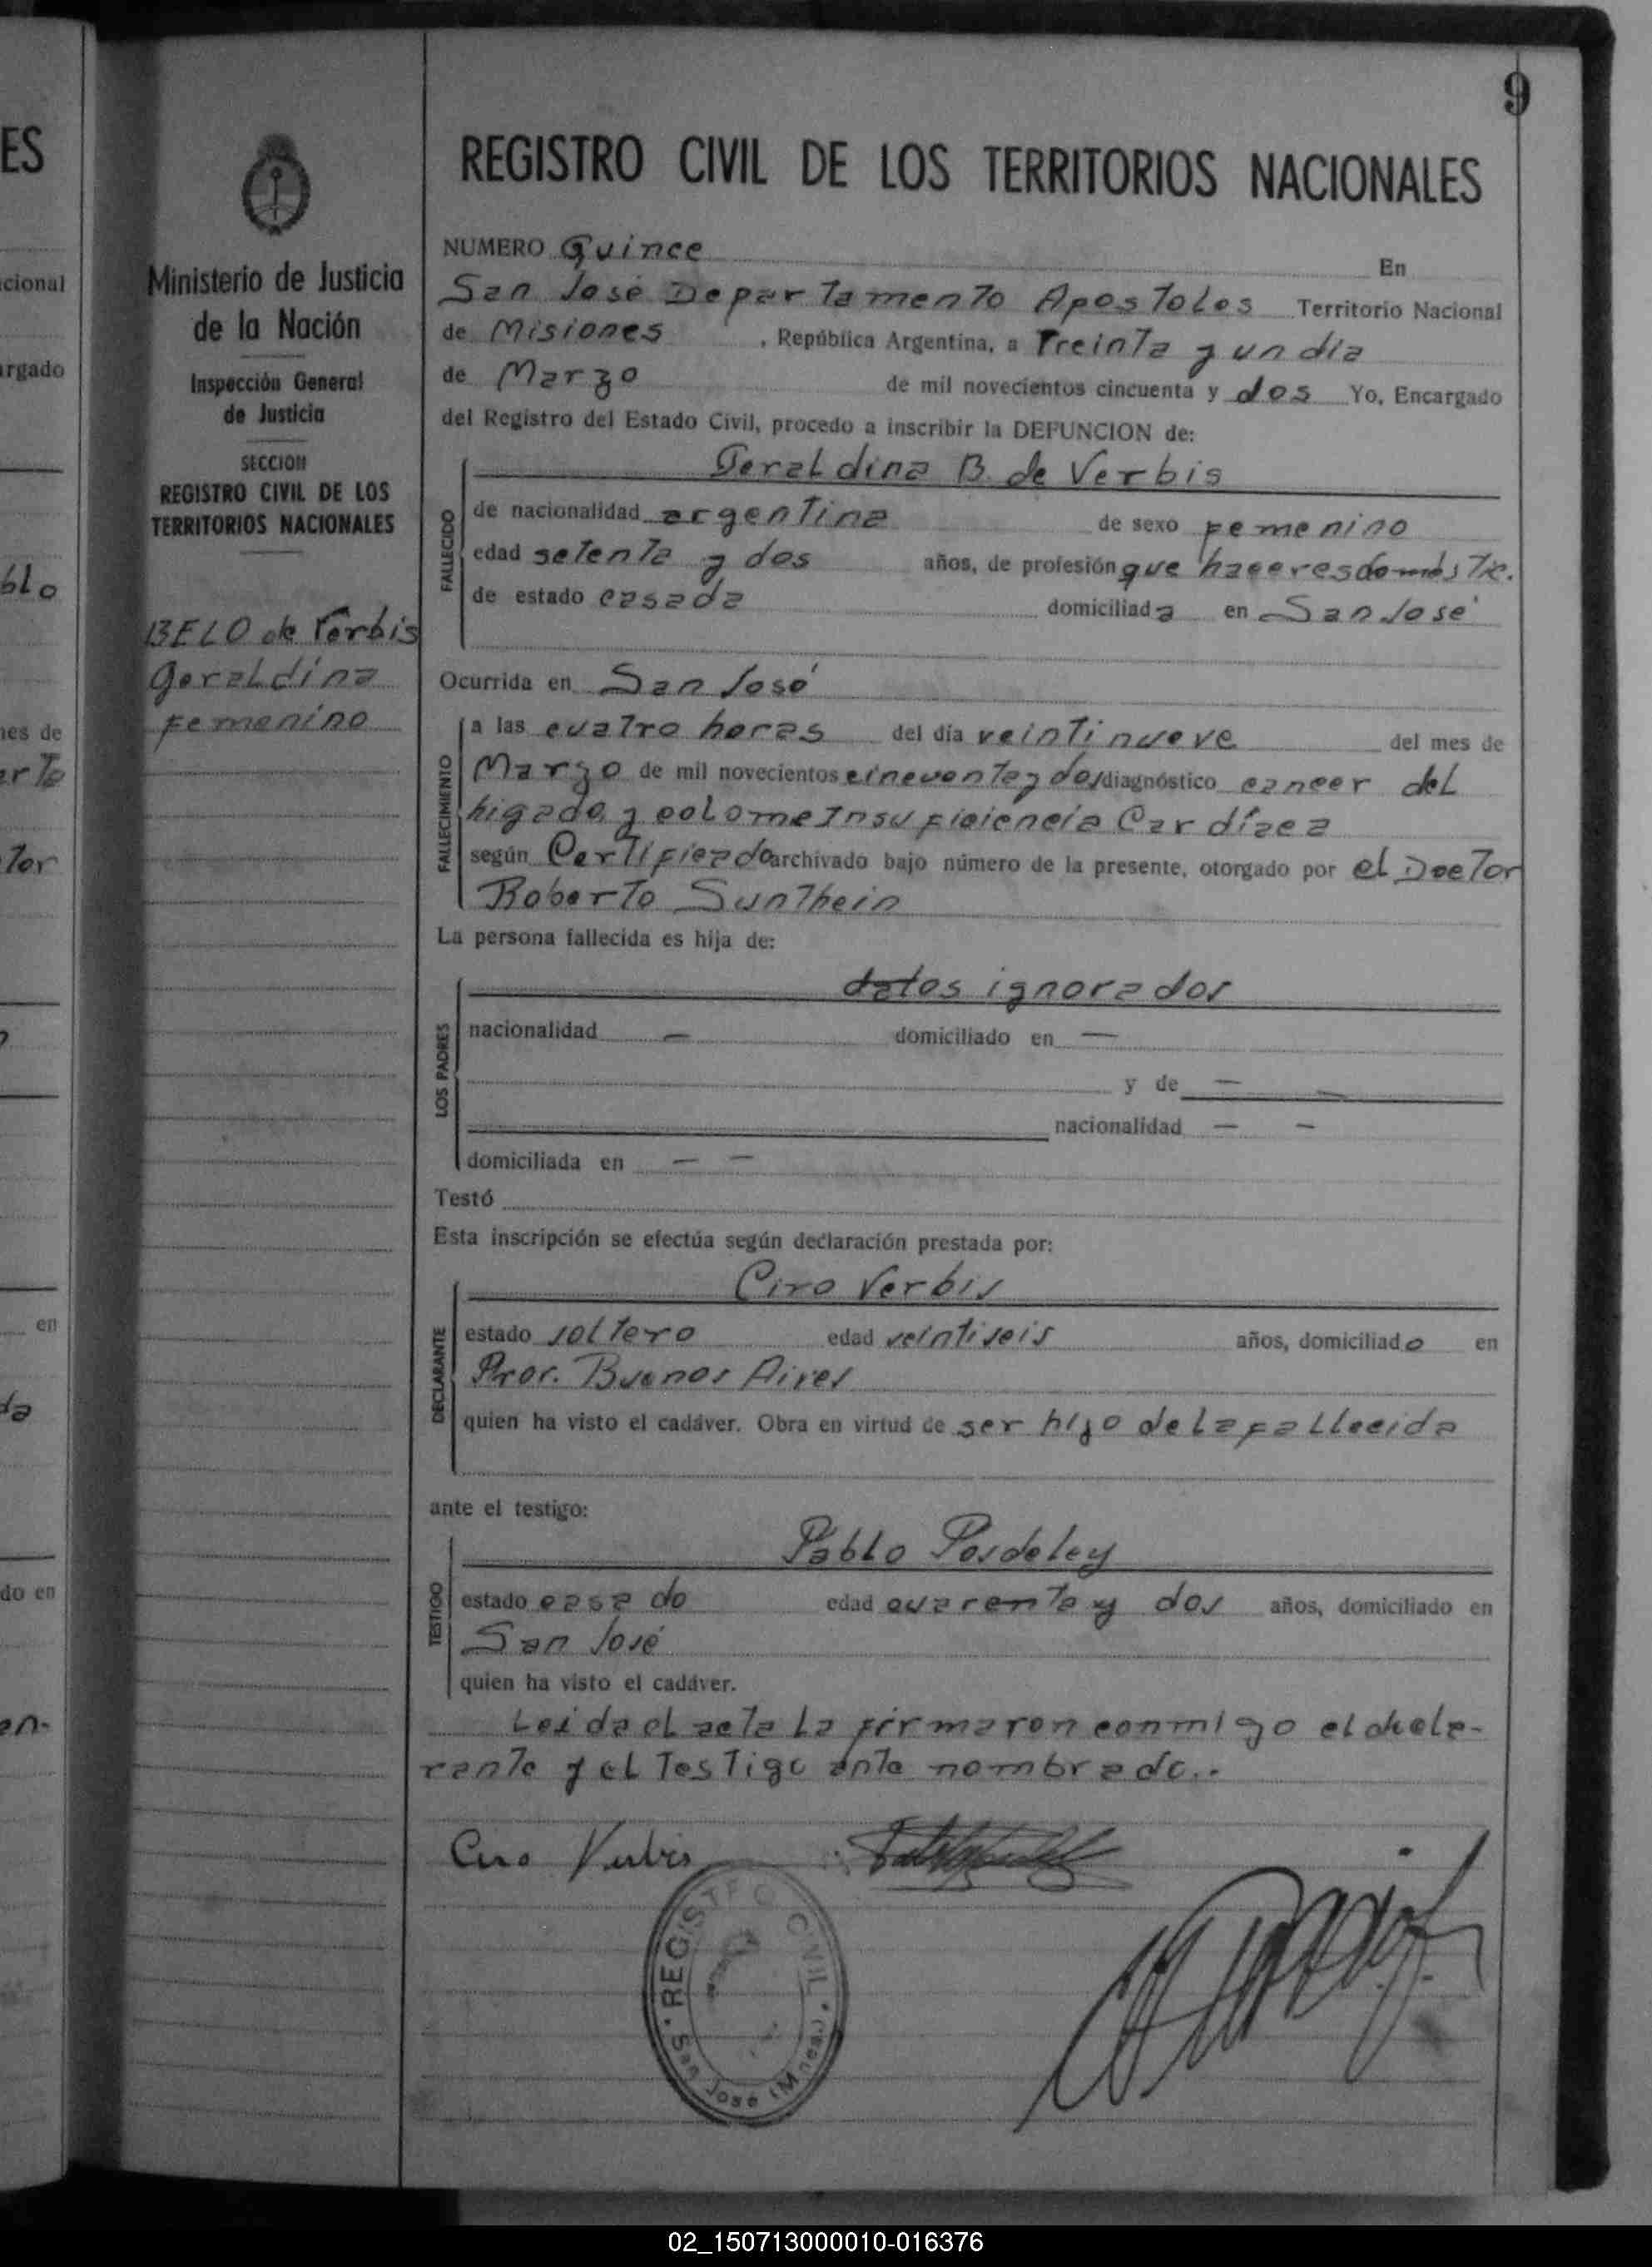 9
REGISTRO CIVIL DE LOS TERRITORIOS NACIONALES
Ministerio de Justicia
de la Nación
Inspección General
de Justicia
SECCION
REGISTRO CIVIL DE LOS
TERRITORIOS NACIONALES
BELO de Verbis
Geraldina
Femenino
NUMERO Quince En
San José Departamento Apostoles Territorio Nacional
de Misiones, República Argentina, a Treinta y un dia
de Marzo de mil novecientos cincuenta y dos Yo, Encargado
del Registro del Estado Civil, procedo a inscribir la DEFUNCION de:
Geraldina B. de Verbis
FALLECIDO
de nacionalidad argentina de sexo Femenino
edad setenta y dos años, de profesión que haceres domestic.
de estado casada domiciliada en San José
Ocurrida en San José
FALLECIMIENTO
a las cuatro horas del día veintinueve del mes de
Marzo de mil novecientos cincuenta y dos diagnóstico cancer del
higado y Insuficiencia Cardíaca
según Certificado archivado bajo número de la presente, otorgado por el Doctor
Roberto Sunthein
La persona fallecida es hija de:
datos ignorados
LOS PADRES
nacionalidad — domiciliado en —
y de — —
nacionalidad — —
domiciliada en — —
Testó
Esta inscripción se efectúa según declaración prestada por:
Ciro Verbis
DECLARANTE
estado soltero edad veintiseis años, domiciliado en
Prov. Buenos Aires
quien ha visto el cadáver. Obra en virtud de ser hijo de la fallecida
ante el testigo:
Pablo Posdeley
TESTIGO
estado casado edad cuarenta y dos años, domiciliado en
San José
quien ha visto el cadáver.
Leida el acta la firmaron conmigo el decla-
rante y el Testigo ante nombrado..
Ciro Verbis
REGISTRO CIVIL
San José (Mnes.)
ES
cional
rgado
blo
nes de
tor
en
da
do en
an-
02_150713000010-016376